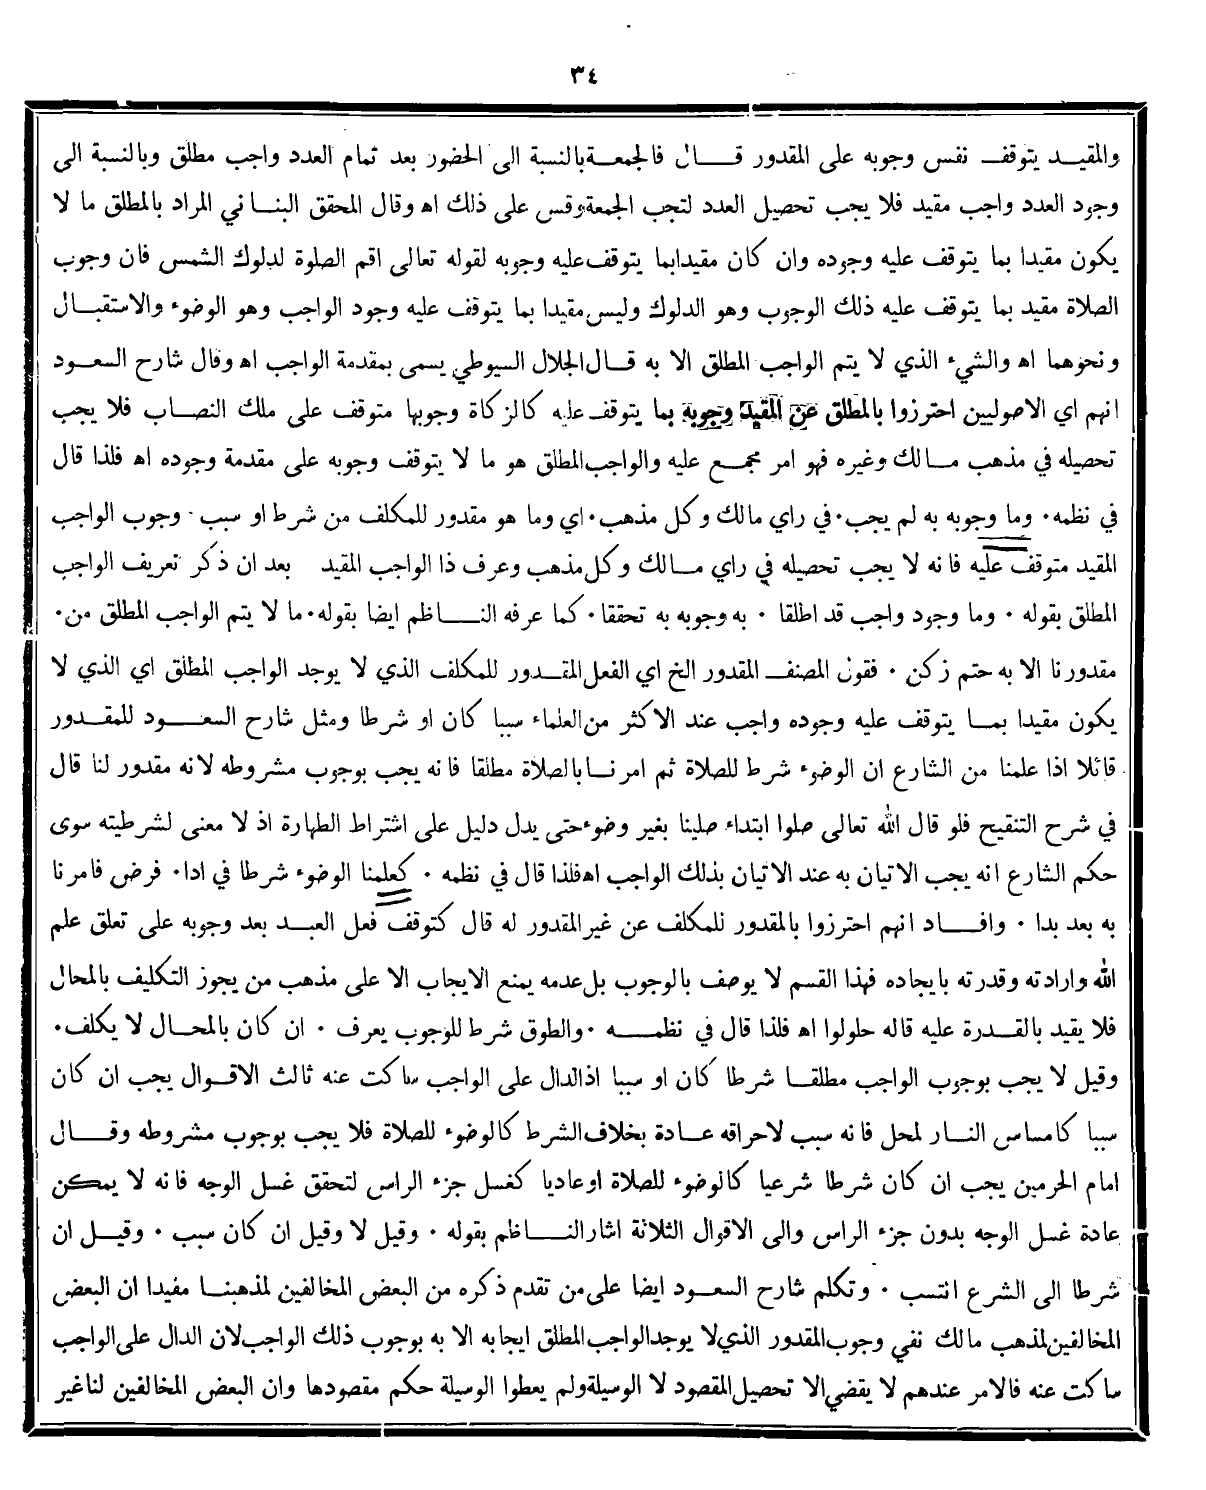 ٣٤
والمقيد يتوقف نفس وجوبه على المقدور قال فالجمعة بالنسبة الى الحضور بعد تمام العدد واجب مطلق وبالنسبة الى
وجود العدد واجب مقيد فلا يجب تحصيل العدد لتجب الجمعة وقس على ذلك اه وقال المحقق البناني المراد بالمطلق ما لا
يكون مقيدا بما يتوقف عليه وجوده وان كان مقيدا بما يتوقف عليه وجوبه لقوله تعالى اقم الصلوة لدلوك الشمس فان وجوب
الصلاة مقيد بما يتوقف عليه ذلك الوجوب وهو الدلوك وليس مقيدا بما يتوقف عليه وجود الواجب وهو الوضوء والاستقبال
ونحوهما اه والشيء الذي لا يتم الواجب المطلق الا به قال الجلال السيوطي يسمى بمقدمة الواجب اه وقال شارح السعود
انهم اي الاصوليين احترزوا بالمطلق عن المقيد وجوبه بما يتوقف عليه كالزكاة وجوبها متوقف على ملك النصاب فلا يجب
تحصيله في مذهب مالك وغيره فهو امر مجمع عليه والواجب المطلق هو ما لا يتوقف وجوبه على مقدمة وجوده اه فلذا قال
في نظمه٠ وما وجوبه به لم يجب٠ في راي مالك وكل مذهب٠ اي وما هو مقدور للمكلف من شرط او سبب وجوب الواجب
المقيد متوقف عليه فانه لا يجب تحصيله في راي مالك وكل مذهب وعرف ذا الواجب المقيد بعد ان ذكر تعريف الواجب
المطلق بقوله ٠ وما وجود واجب قد اطلقا ٠ به وجوبه به تحققا٠ كما عرفه الناظم ايضا بقوله٠ ما لا يتم الواجب المطلق من٠
مقدورنا الا به حتم زكن ٠ فقول المصنف المقدور الخ اي الفعل المقدور للمكلف الذي لا يوجد الواجب المطلق اي الذي لا
يكون مقيدا بما يتوقف عليه وجوده واجب عند الاكثر من العلماء سببا كان او شرطا ومثل شارح السعود للمقدور
قائلا اذا علمنا من الشارع ان الوضوء شرط للصلاة ثم امرنا بالصلاة مطلقا فانه يجب بوجوب مشروطه لانه مقدور لنا قال
في شرح التنقيح فلو قال الله تعالى صلوا ابتداء صلينا بغير وضوء حتى يدل دليل على اشتراط الطهارة اذ لا معنى لشرطيته سوى
حكم الشارع انه يجب الاتيان به عند الاتيان بذلك الواجب اه فلذا قال في نظمه ٠ كعلمنا الوضوء شرطا في ادا٠ فرض فامرنا
به بعد بدا ٠ وافاد انهم احترزوا بالمقدور للمكلف عن غير المقدور له قال كتوقف فعل العبد بعد وجوبه على تعلق علم
الله وارادته وقدرته بايجاده فهذا القسم لا يوصف بالوجوب بل عدمه يمنع الايجاب الا على مذهب من يجوز التكليف بالمحال
فلا يقيد بالقدرة عليه قاله حلولوا اه فلذا قال في نظمه ٠ والطوق شرط للوجوب يعرف ٠ ان كان بالمحال لا يكلف٠
وقيل لا يجب بوجوب الواجب مطلقا شرطا كان او سببا اذ الدال على الواجب ساكت عنه ثالث الاقوال يجب ان كان
سببا كامساس النار لمحل فانه سبب لاحراقه عادة بخلاف الشرط كالوضوء للصلاة فلا يجب بوجوب مشروطه وقال
امام الحرمين يجب ان كان شرطا شرعيا كالوضوء للصلاة او عاديا كغسل جزء الراس لتحقق غسل الوجه فانه لا يمكن
عادة غسل الوجه بدون جزء الراس والى الاقوال الثلاثة اشار الناظم بقوله ٠ وقيل لا وقيل ان كان سبب ٠ وقيل ان
شرطا الى الشرع انتسب ٠ وتكلم شارح السعود ايضا على من تقدم ذكره من البعض المخالفين لمذهبنا مفيدا ان البعض
المخالفين لمذهب مالك نفي وجوب المقدور الذي لا يوجد الواجب المطلق ايجابه الا به بوجوب ذلك الواجب لان الدال على الواجب
ساكت عنه فالامر عندهم لا يقضي الا تحصيل المقصود لا الوسيلة ولم يعطوا الوسيلة حكم مقصودها وان البعض المخالفين لنا غير